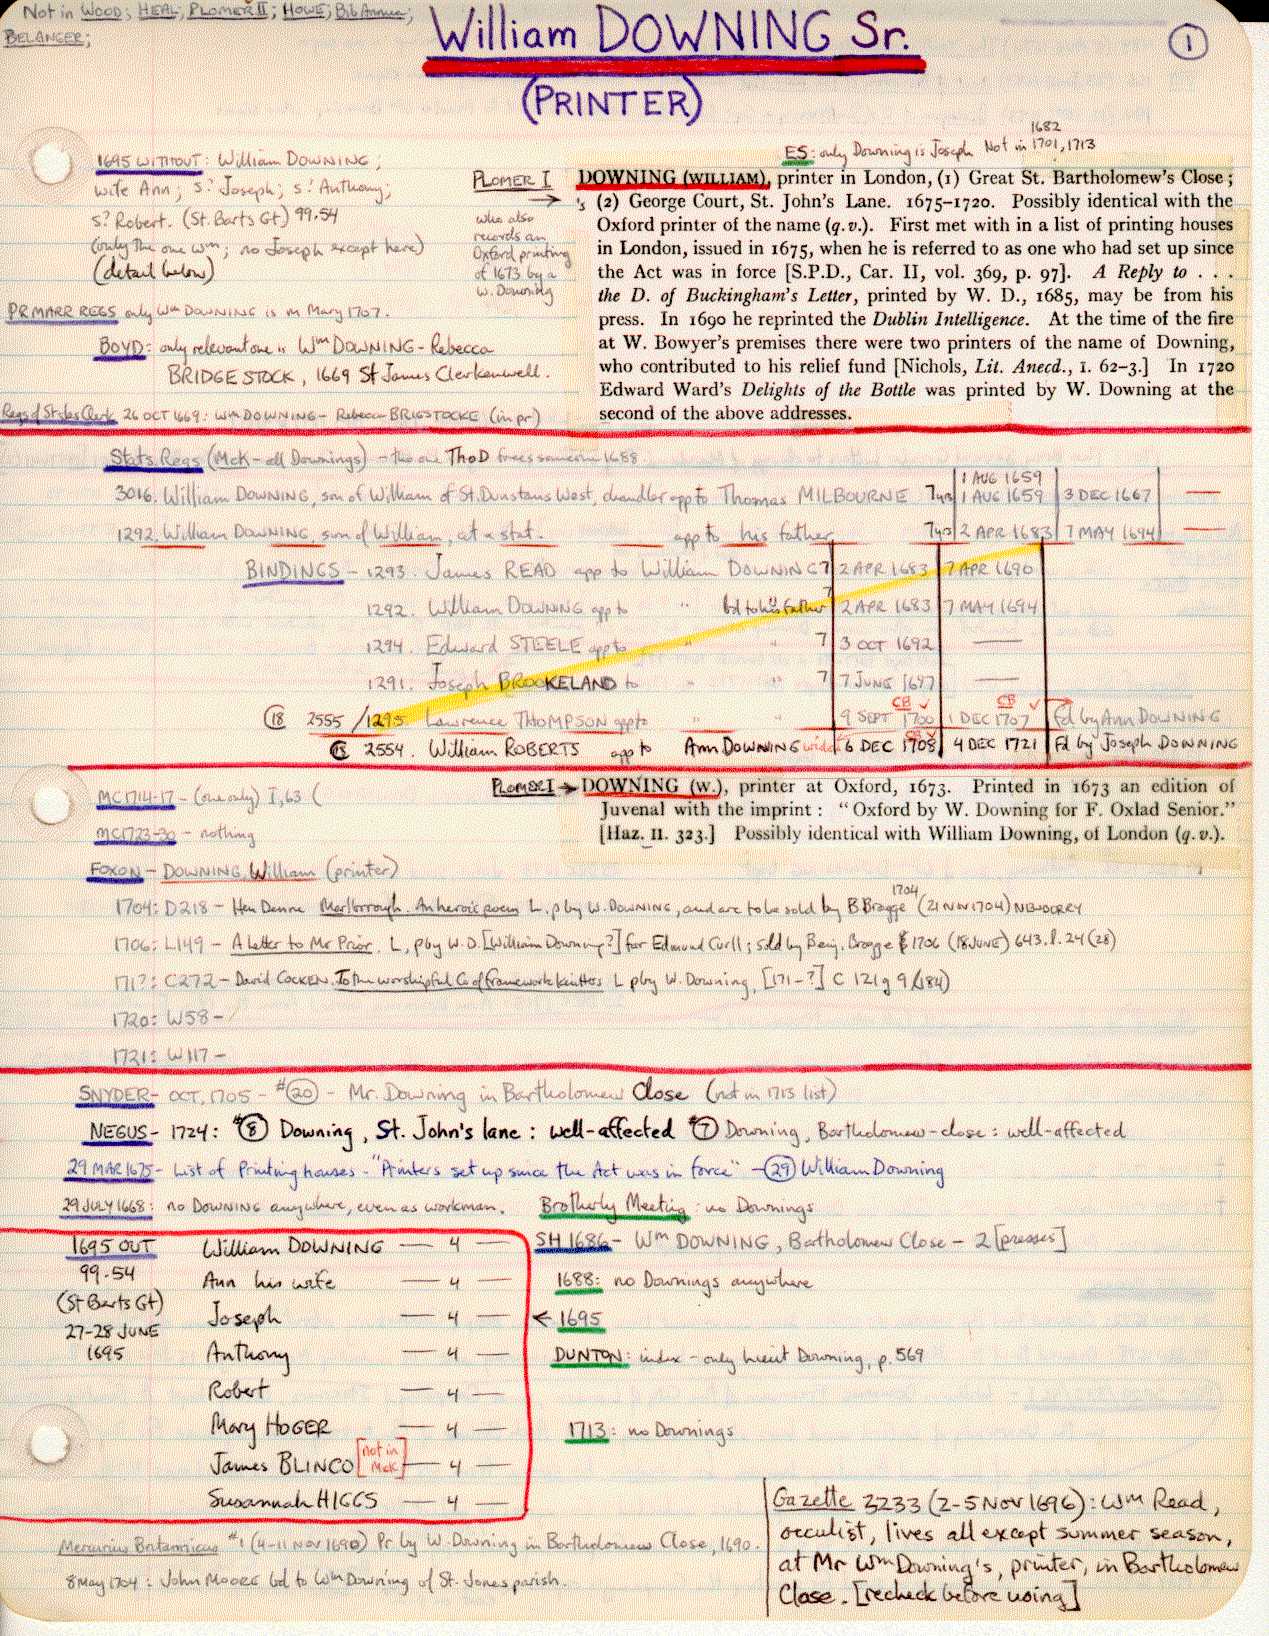 Not in WOOD; HEAL; PLOMER II; HOWE; Bib Annua;
BELANGER;
William DOWNING Sr.
①
(PRINTER)
1695 WITHOUT: William DOWNING;
wife Ann; s? Joseph; s? Anthony;
s? Robert. (St. Barts Gt) 99.54
(only the one Wm; no Joseph except here)
(detail below)
PR MARR REGS only Wm DOWNING is m Mary 1707.
BOYD: only relevant one is Wm DOWNING - Rebecca
BRIDGESTOCK, 1669 St James Clerkenwell.
Regs of St Jas Clerk 26 OCT 1669: Wm DOWNING - Rebecca BRIGSTOCKE (in pr)
1682
ES: only Downing is Joseph Not in 1701, 1713
PLOMER I
's
who also
records an
Oxford printing
of 1673 by a
W. Downing
DOWNING (WILLIAM), printer in London, (1) Great St. Bartholomew's Close;
(2) George Court, St. John's Lane. 1675-1720. Possibly identical with the
Oxford printer of the name (q.v.). First met with in a list of printing houses
in London, issued in 1675, when he is referred to as one who had set up since
the Act was in force [S.P.D., Car. II, vol. 369, p. 97]. A Reply to . . .
the D. of Buckingham's Letter, printed by W. D., 1685, may be from his
press. In 1690 he reprinted the Dublin Intelligence. At the time of the fire
at W. Bowyer's premises there were two printers of the name of Downing,
who contributed to his relief fund [Nichols, Lit. Anecd., I. 62-3.] In 1720
Edward Ward's Delights of the Bottle was printed by W. Downing at the
second of the above addresses.
Stats Regs (McK - all Downings) - the one Tho D frees someone 1688
1 AUG 1659
3016. William DOWNING, son of William of St. Dunstans West, chandler app to Thomas MILBOURNE 7 yrs 1 AUG 1659 3 DEC 1667 —
1292. William DOWNING, son of William, cit & stat. app to his father 7 yrs 2 APR 1683 7 MAY 1694 —
BINDINGS - 1293. James READ app to William DOWNING 7 2 APR 1683 7 APR 1690
1292. William DOWNING app to " bd to his father 7 2 APR 1683 7 MAY 1694
1294. Edward STEELE app to " " 7 3 OCT 1692 —
1291. Joseph BROOKELAND to " " 7 7 JUNE 1697 —
CB ✓ CB ✓
⑱ 2555 / 1295. Lawrence THOMPSON app to " " 9 SEPT 1700 1 DEC 1707 Fd by Ann DOWNING
CB ✓
⑱ 2554. William ROBERTS app to Ann DOWNING widow 6 DEC 1708 4 DEC 1721 Fd by Joseph DOWNING
MC1714-17 - (one only) I, 63 (
MC1723-30 - nothing
PLOMER I → DOWNING (W.), printer at Oxford, 1673. Printed in 1673 an edition of
Juvenal with the imprint: "Oxford by W. Downing for F. Oxlad Senior."
[Haz. II. 323.] Possibly identical with William Downing, of London (q.v.).
FOXON - DOWNING, William (printer)
1704
1704: D218 - Hen Denne Marlborough. An heroic poem L, p by W. DOWNING, and are to be sold by B. Bragge (21 NOV 1704) NEWBERRY
1706: L149 - A Letter to Mr Prior. L, p by W. D. [William Downing?] for Edmund Curll; sold by Benj. Bragge 1706 (18 JUNE) 643.l.24 (28)
171?: C272 - David COCKEN. To the worshipful Co of framework knitters L p by W. Downing, [171-?] C 121 g 9 (184)
1720: W58 -
1721: W117 -
SNYDER - OCT, 1705 - #⑳ - Mr. Downing in Bartholomew Close (not in 1713 list)
NEGUS - 1724: #⑧ Downing, St. John's lane: well-affected #⑦ Downing, Bartholomew-close: well-affected
29 MAR 1675 - List of Printing houses - "Printers set up since the Act was in force" - ㉙ William Downing
29 JULY 1668: no DOWNING anywhere, even as workman. Brotherly Meeting: no Downings
1695 OUT
99.54
(St Barts Gt)
27-28 JUNE
1695
William DOWNING — 4 —
Ann his wife — 4 —
Joseph — 4 —
Anthony — 4 —
Robert — 4 —
Mary HOGER — 4 —
James BLINCO [not in McK] — 4 —
Susannah HIGGS — 4 —
SH 1686 - Wm DOWNING, Bartholomew Close - 2 [presses]
1688: no Downings anywhere
← 1695
DUNTON: index - only Downing, p. 569
1713: no Downings
Mercurius Britannicus #1 (4-11 NOV 1690) Pr by W. Downing in Bartholomew Close, 1690.
8 May 1704: John MOORE bd to Wm Downing of St. Jones parish.
Gazette 3233 (2-5 NOV 1696): Wm Read,
occulist, lives all except summer season,
at Mr Wm Downing's, printer, in Bartholomew
Close. [recheck before using]